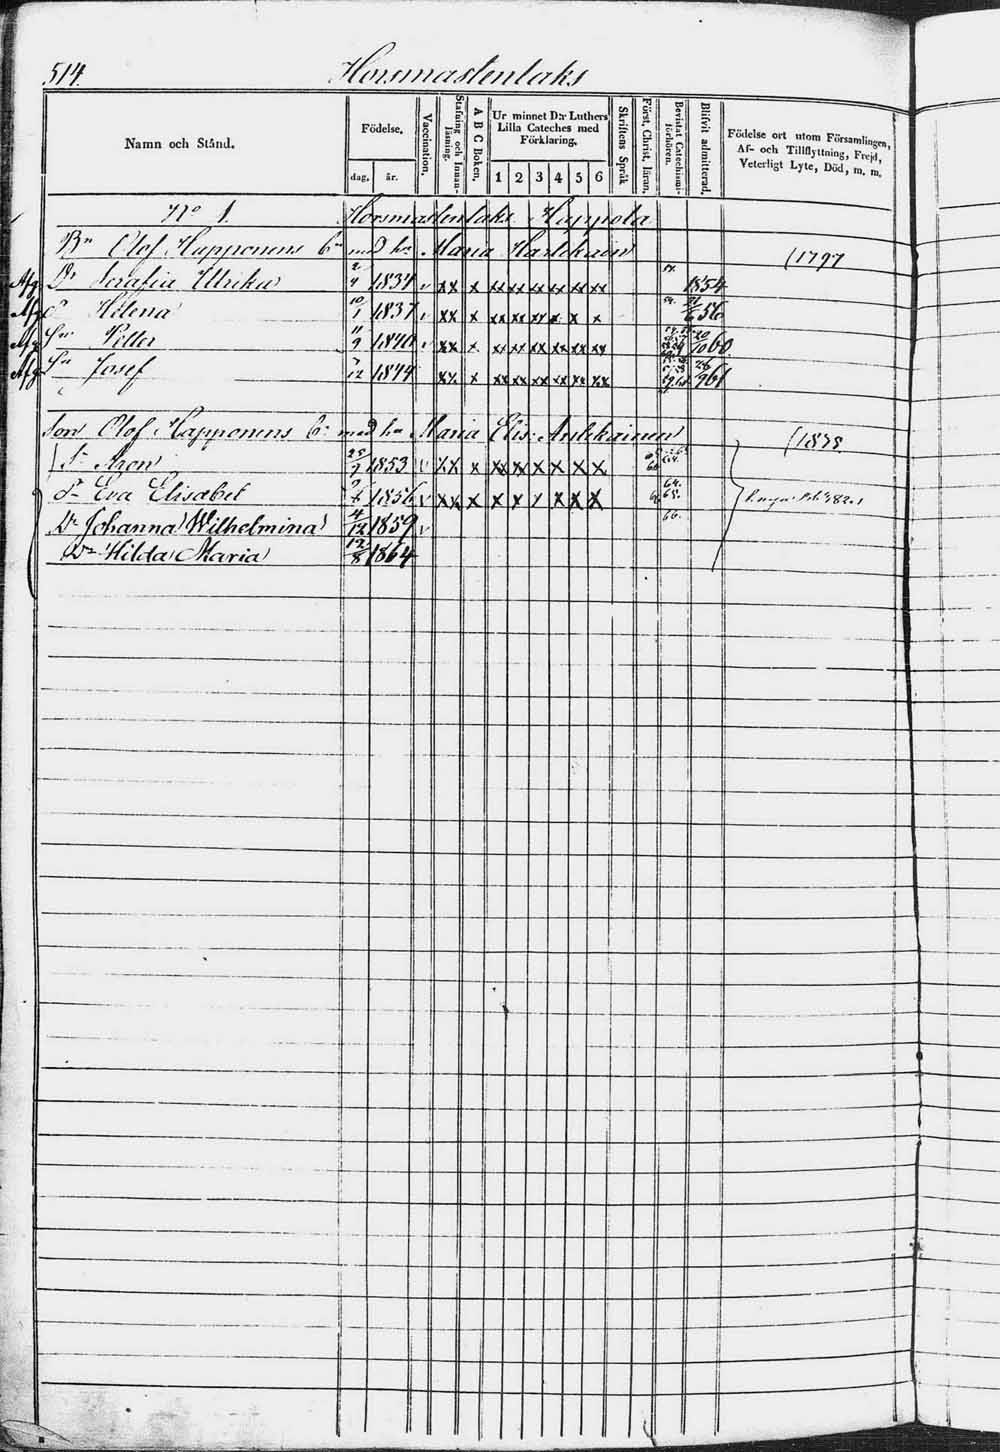 514. Horsmastenlaks
Namn och Stånd.
Födelse.
dag. år.
Vaccination.
Stafning och Innanläsning.
A B C Boken.
Ur minnet D:r Luthers Lilla Cateches med Förklaring.
1 2 3 4 5 6
Skriftens Språk
Först. Christ. läran.
Bevistat Catechismi-förhören.
Blifvit admitterad.
Födelse ort utom Församlingen, Af- och Tillflyttning, Frejd, Veterligt Lyte, Död, m. m.
No 1. Horsmastenlaks Happola
Bn Olof Happonens med hu Maria (1797
Afg Dr Serafia Ulrika 2/4 1834 v xx x xx xx xx xx xx xx 1854
Afg Helena 10/1 1837 v xx x xx xx xx x x x 56
Afg Sn Petter 11/9 1840 v xx x xx xx xx xx xx xx 20/10 60
Afg Sn Josef 7/12 1844 xx x xx xx xx xx xx xx 61
Son Olof Happonens med hu Maria Elis: (1838
Aron 1853 v xx x x x x x x x
Eva Elisabet 1856 v xx x x x x x x x 64. 65.
Dr Johanna Wilhelmina 4/12 1859 v 66.
Dr Hilda Maria 12/8 1864